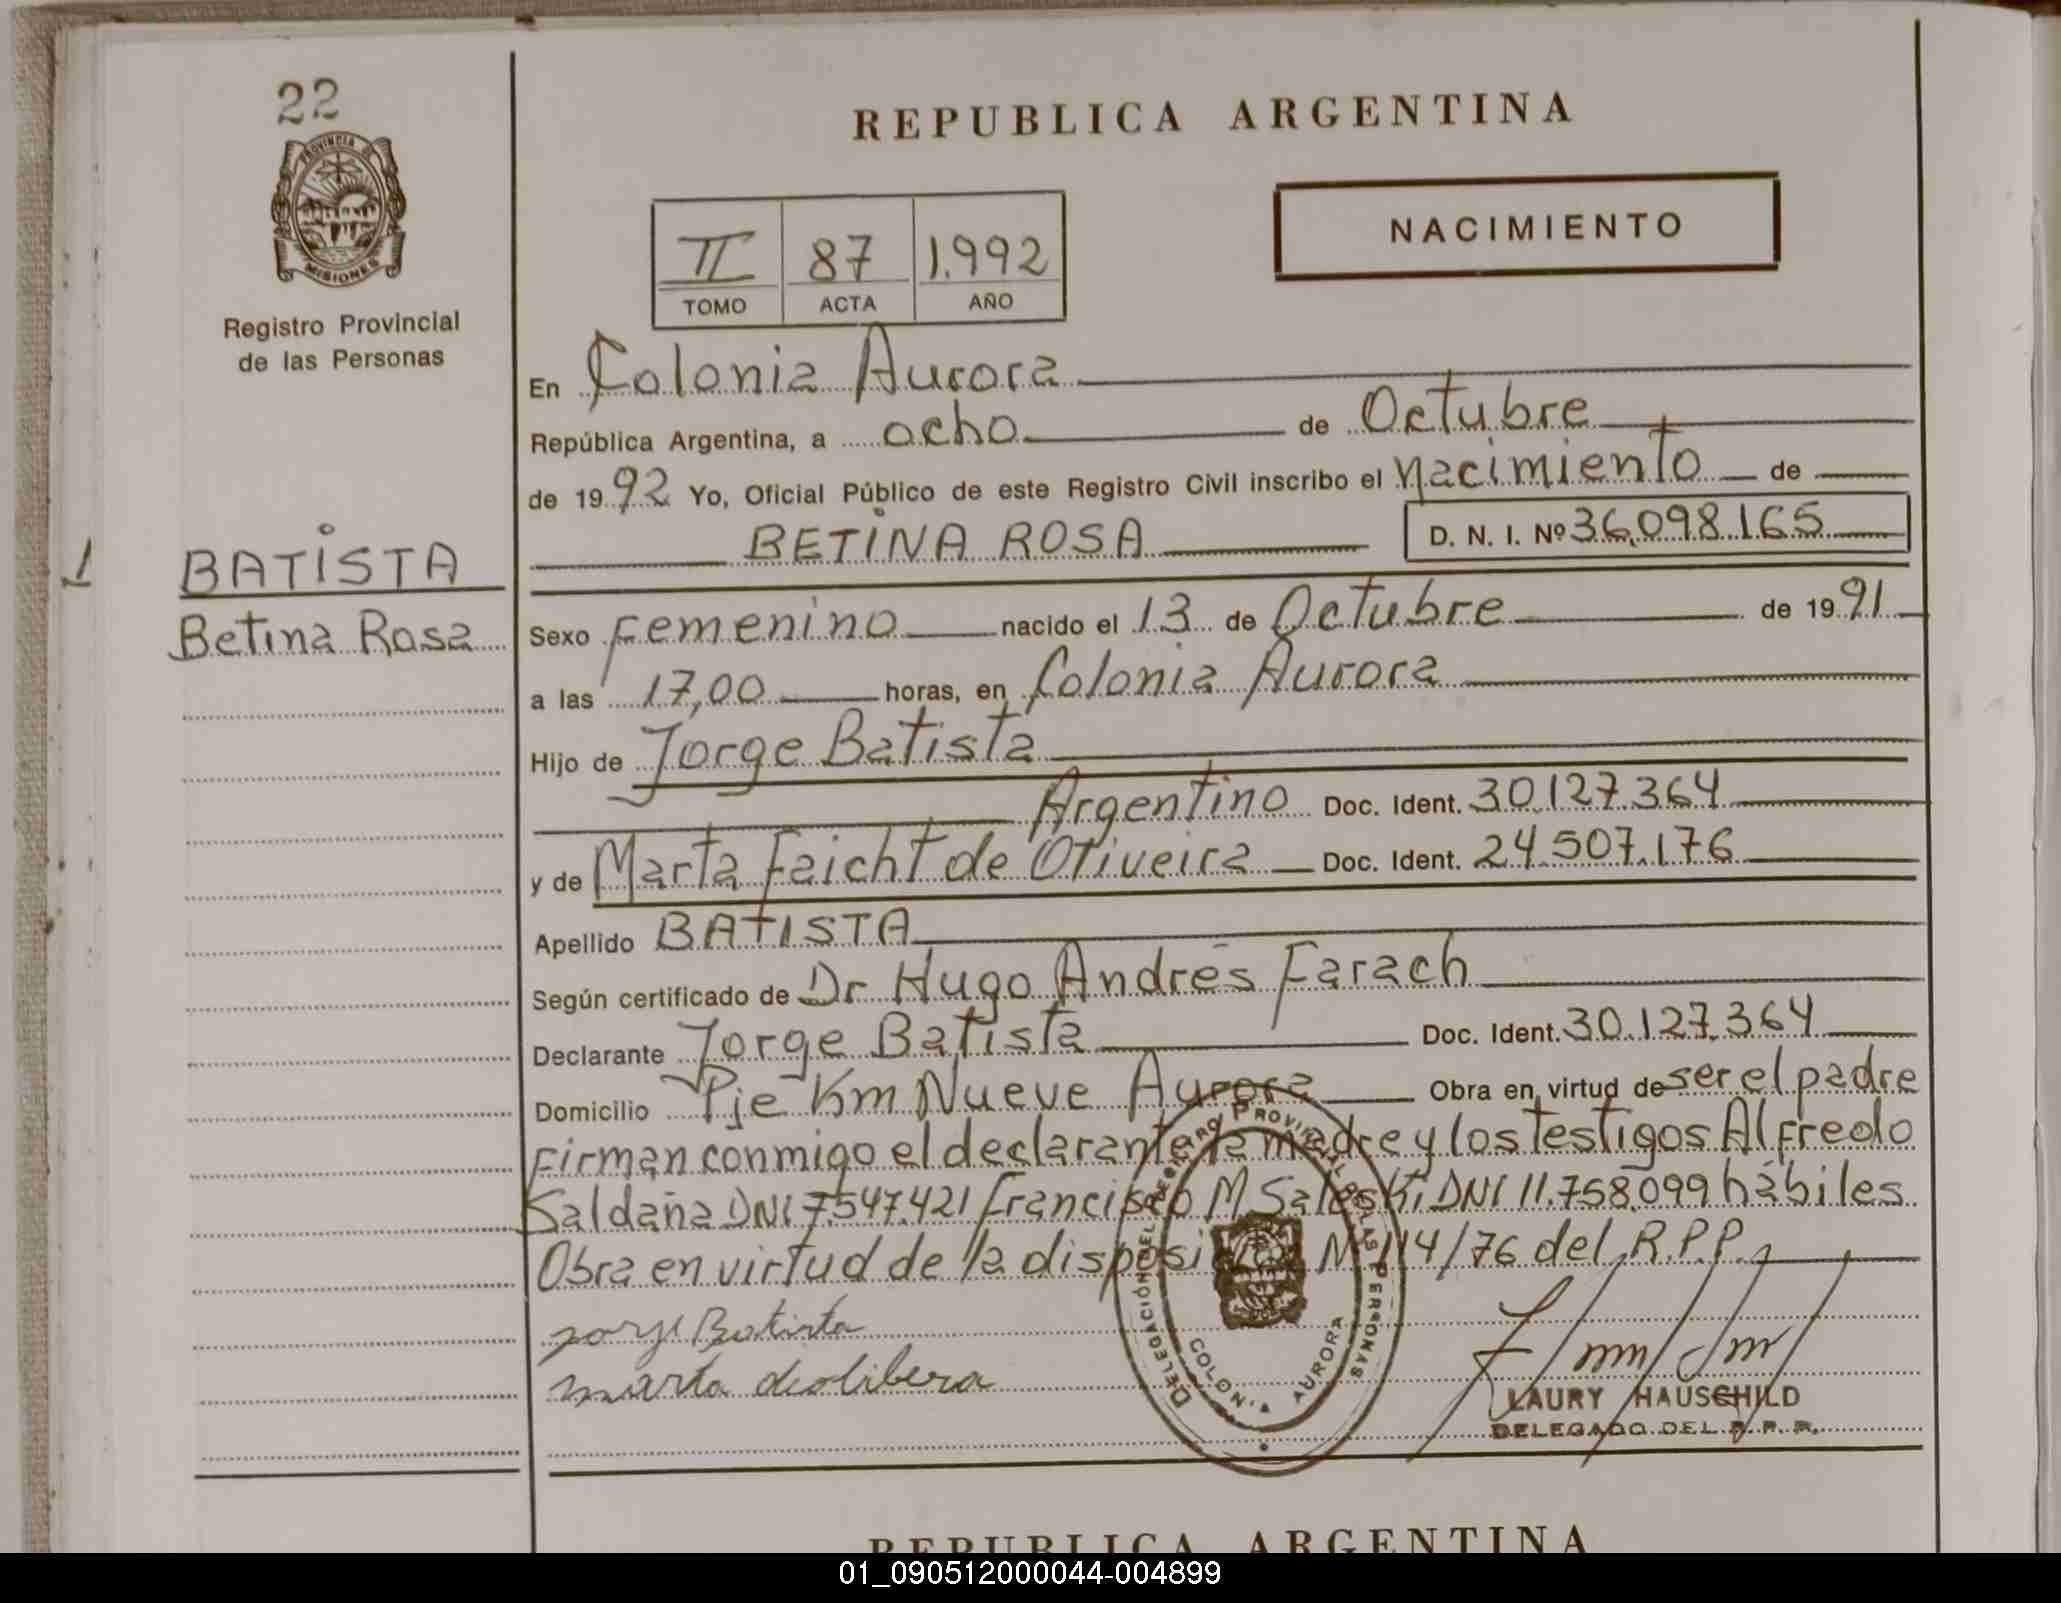 22
PROVINCIA DE
MISIONES
Registro Provincial
de las Personas
BATISTA
Betina Rosa
REPUBLICA ARGENTINA
NACIMIENTO
II 87 1.992
TOMO ACTA AÑO
En Colonia Aurora
República Argentina, a ocho de Octubre
de 1992 Yo, Oficial Público de este Registro Civil inscribo el Nacimiento de
BETINA ROSA D. N. I. Nº 36.098.165
Sexo Femenino nacido el 13 de Octubre de 1991
a las 17,00 horas, en Colonia Aurora
Hijo de Jorge Batista
Argentino Doc. Ident. 30.127.364
y de Marta Faicht de Oliveira Doc. Ident. 24.507.176
Apellido BATISTA
Según certificado de Dr Hugo Andrés Farach
Declarante Jorge Batista Doc. Ident. 30.127.364
Domicilio Pje Km Nueve Aurora Obra en virtud de ser el padre
Firman conmigo el declarante la madre y los testigos Alfredo
Saldaña DNI 7.547.421 Francisco M Saleski DNI 11.758.099 hábiles
Obra en virtud de la disposición Nº 114/76 del R.P.P.
Jorge Batista
marta deolibera
DELEGACIÓN DEL REGISTRO PROVINCIAL DE LAS PERSONAS
COLONIA AURORA
LAURY HAUSCHILD
DELEGADO DEL R. P. P.
REPUBLICA ARGENTINA
01_090512000044-004899